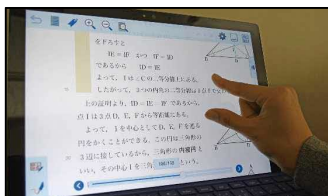 をおろすと
IE=IF かつ IF=ID
であるから ID=IE
よって，Iは∠Cの二等分線上にある。
したがって，3つの内角の二等分線は1点Iで
上の証明より，ID=IE=IFであるから，
点Iは3点D，E，Fから等距離にある。
よって，Iを中心としてD，E，Fを通る
円をかくことができる。この円は三角形の
3辺に接しているから，三角形の内接円と
いい，その中心Iを三角 という。